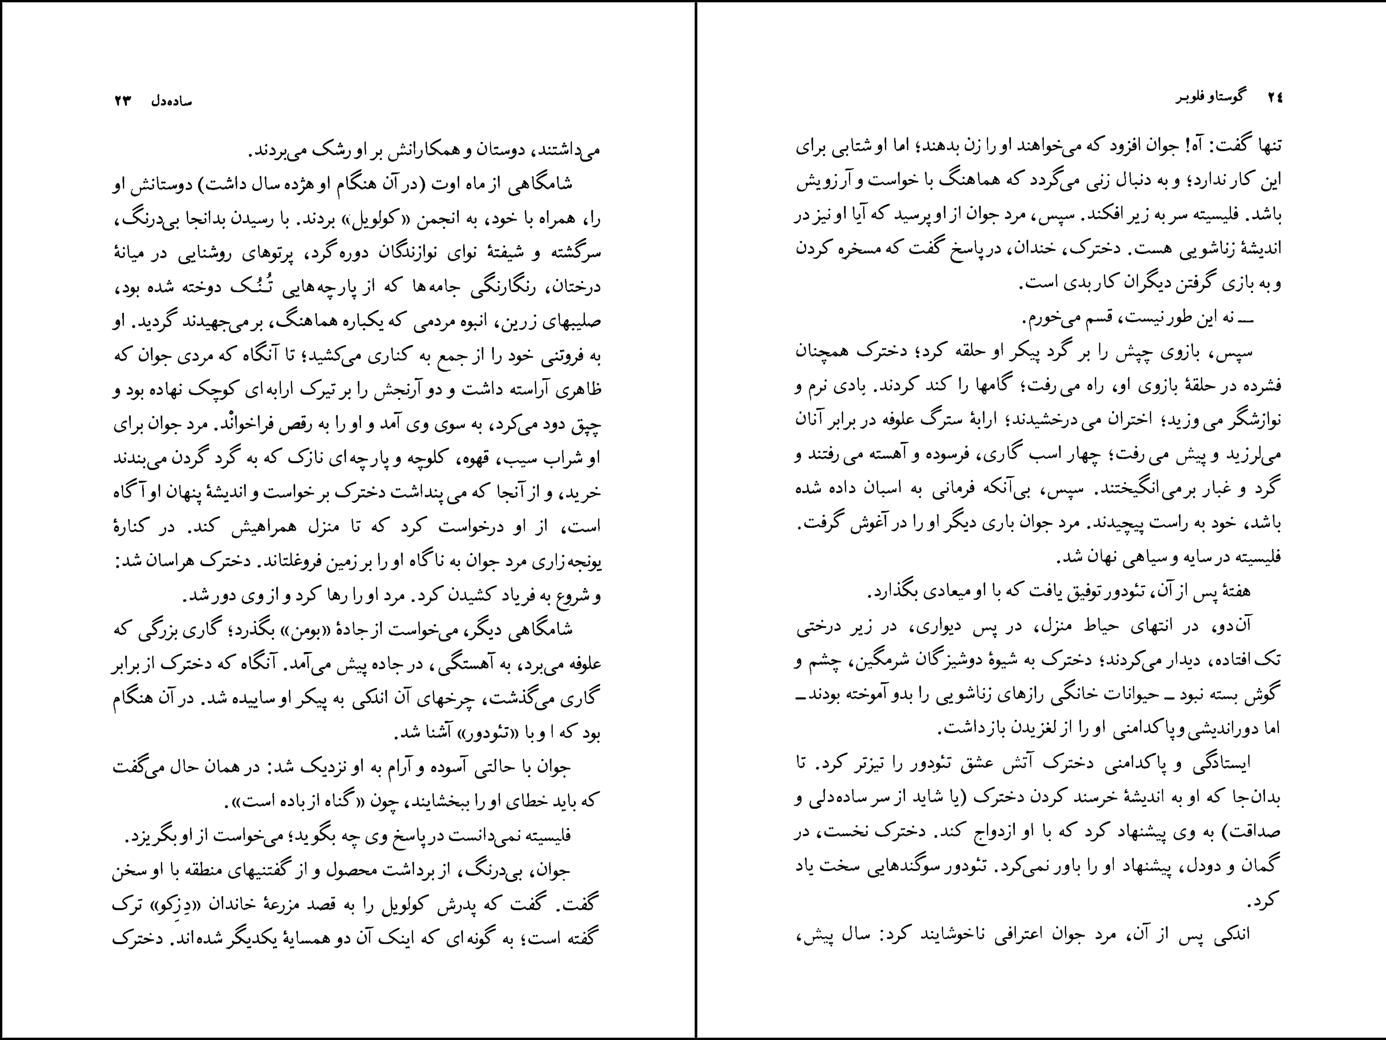 ساده‌دل ۲۳
می‌داشتند، دوستان و همکارانش بر او رشک می‌بردند.
شامگاهی از ماه اوت (در آن هنگام او هژده سال داشت) دوستانش او
را، همراه با خود، به انجمن «کولویل» بردند. با رسیدن بدانجا بی‌درنگ،
سرگشته و شیفتهٔ نوای نوازندگان دوره‌گرد، پرتوهای روشنایی در میانهٔ
درختان، رنگارنگی جامه‌ها که از پارچه‌هایی تُنُک دوخته شده بود،
صلیبهای زرین، انبوه مردمی که یکباره هماهنگ، برمی‌جهیدند گردید. او
به فروتنی خود را از جمع به کناری می‌کشید؛ تا آنگاه که مردی جوان که
ظاهری آراسته داشت و دو آرنجش را بر تیرک ارابه‌ای کوچک نهاده بود و
چپق دود می‌کرد، به سوی وی آمد و او را به رقص فراخوانْد. مرد جوان برای
او شراب سیب، قهوه، کلوچه و پارچه‌ای نازک که به گرد گردن می‌بندند
خرید، و از آنجا که می‌پنداشت دخترک بر خواست و اندیشهٔ پنهان او آگاه
است، از او درخواست کرد که تا منزل همراهیش کند. در کنارهٔ
یونجه‌زاری مرد جوان به ناگاه او را بر زمین فروغلتاند. دخترک هراسان شد:
و شروع به فریاد کشیدن کرد. مرد او را رها کرد و از وی دور شد.
شامگاهی دیگر، می‌خواست از جادهٔ «بومن» بگذرد؛ گاری بزرگی که
علوفه می‌برد، به آهستگی، در جاده پیش می‌آمد. آنگاه که دخترک از برابر
گاری می‌گذشت، چرخهای آن اندکی به پیکر او ساییده شد. در آن هنگام
بود که او با «تئودور» آشنا شد.
جوان با حالتی آسوده و آرام به او نزدیک شد: در همان حال می‌گفت
که باید خطای او را ببخشایند، چون «گناه از باده است».
فلیسیته نمی‌دانست در پاسخ وی چه بگوید؛ می‌خواست از او بگریزد.
جوان، بی‌درنگ، از برداشت محصول و از گفتنیهای منطقه با او سخن
گفت. گفت که پدرش کولویل را به قصد مزرعهٔ خاندان «دِزِکو» ترک
گفته است؛ به گونه‌ای که اینک آن دو همسایهٔ یکدیگر شده‌اند. دخترک
۲٤ گوستاو فلوبر
تنها گفت: آه! جوان افزود که می‌خواهند او را زن بدهند؛ اما او شتابی برای
این کار ندارد؛ و به دنبال زنی می‌گردد که هماهنگ با خواست و آرزویش
باشد. فلیسیته سر به زیر افکند. سپس، مرد جوان از او پرسید که آیا او نیز در
اندیشهٔ زناشویی هست. دخترک، خندان، در پاسخ گفت که مسخره کردن
و به بازی گرفتن دیگران کار بدی است.
ـــ نه این طور نیست، قسم می‌خورم.
سپس، بازوی چپش را بر گرد پیکر او حلقه کرد؛ دخترک همچنان
فشرده در حلقهٔ بازوی او، راه می‌رفت؛ گامها را کند کردند. بادی نرم و
نوازشگر می‌وزید؛ اختران می‌درخشیدند؛ ارابهٔ سترگ علوفه در برابر آنان
می‌لرزید و پیش می‌رفت؛ چهار اسب گاری، فرسوده و آهسته می‌رفتند و
گرد و غبار برمی‌انگیختند. سپس، بی‌آنکه فرمانی به اسبان داده شده
باشد، خود به راست پیچیدند. مرد جوان باری دیگر او را در آغوش گرفت.
فلیسیته در سایه و سیاهی نهان شد.
هفتهٔ پس از آن، تئودور توفیق یافت که با او میعادی بگذارد.
آن‌دو، در انتهای حیاط منزل، در پس دیواری، در زیر درختی
تک‌افتاده، دیدار می‌کردند؛ دخترک به شیوهٔ دوشیزگان شرمگین، چشم و
گوش بسته نبود ــ حیوانات خانگی رازهای زناشویی را بدو آموخته بودند ــ
اما دوراندیشی و پاکدامنی او را از لغزیدن باز داشت.
ایستادگی و پاکدامنی دخترک آتش عشق تئودور را تیزتر کرد. تا
بدان‌جا که او به اندیشهٔ خرسند کردن دخترک (یا شاید از سر ساده‌دلی و
صداقت) به وی پیشنهاد کرد که با او ازدواج کند. دخترک نخست، در
گمان و دودل، پیشنهاد او را باور نمی‌کرد. تئودور سوگندهایی سخت یاد
کرد.
اندکی پس از آن، مرد جوان اعترافی ناخوشایند کرد: سال پیش،